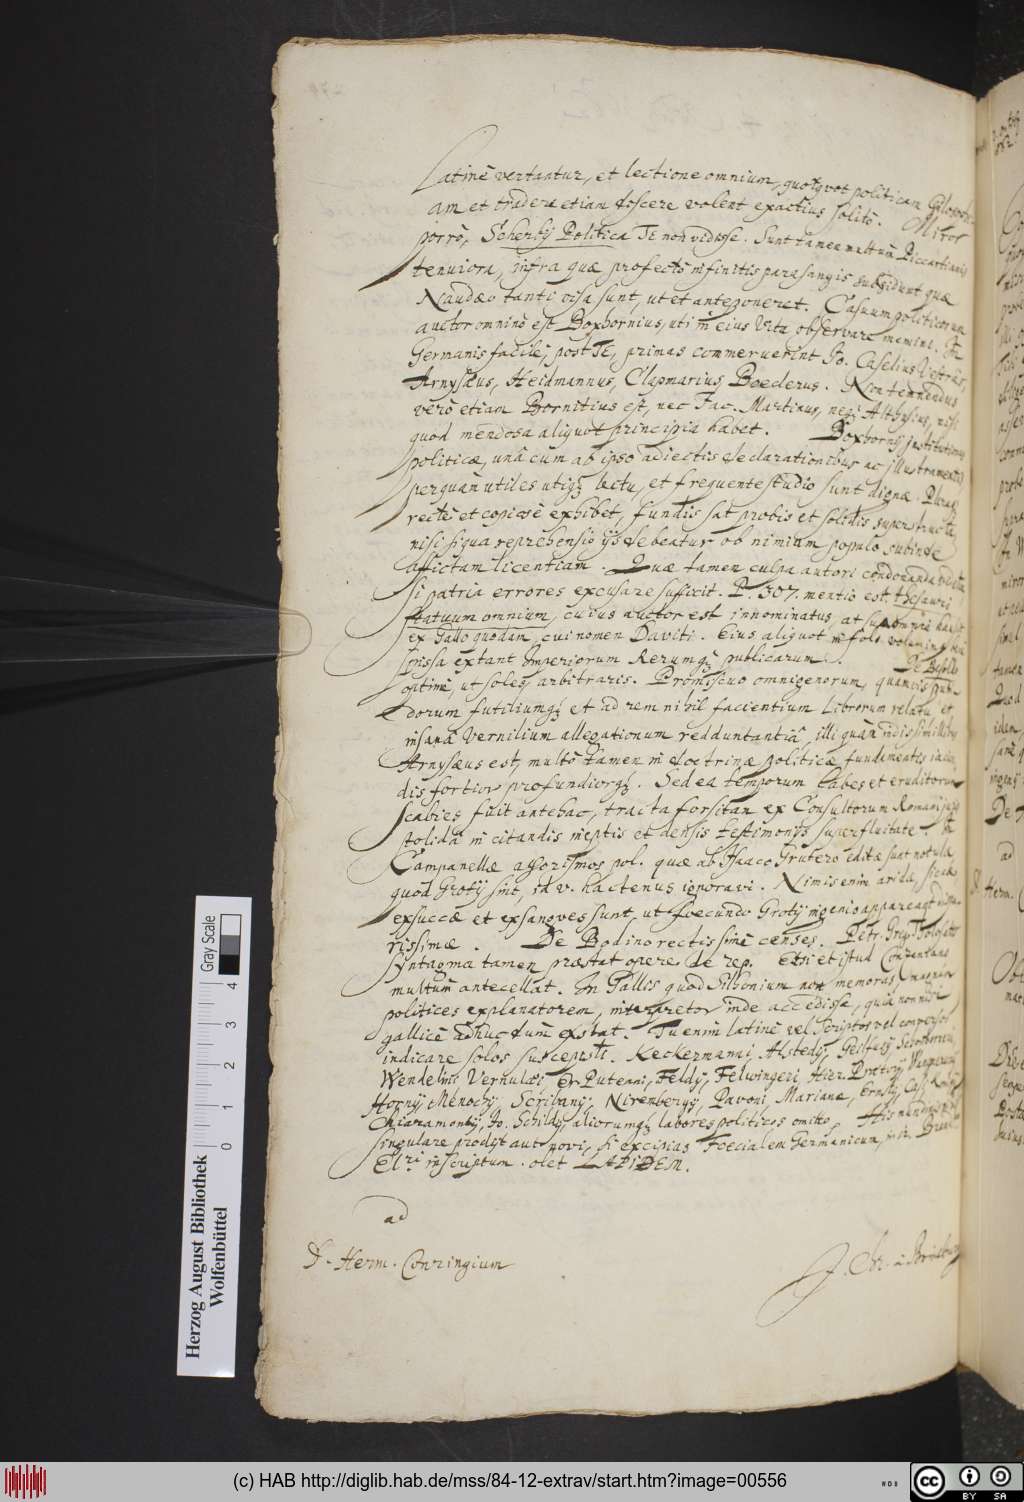 Latinè vertantur, et lectione omnium, quotqvot politicam
am et tradere etiam doscere volent exactius solitò. Miror
porrò, Scherbij Politica Te non vidisse. Sunt tamen multùm Piccartianis
tenuiora, infra quæ profectò infinitis parasangis subsidunt quæ
Naudæo tanti visa sunt, ut et anteponeret. Casuum politicorum
auctor omninò est Boxhornius, uti in eius Vita observare memini. In
Germanis facilè, post Te, primas commeruerint Jo. Caselius Vester,
Arnysæus, Heidmannus, Clapmarius, Boederus. Non temnendus
verò etiam Bornitius est, nec Jac. Martinus, neqz Althusius, nisi
quod mendosa aliquot principia habet. Boxhornij Institutiones
politicæ, unà cum ab ipso adiectis declarationibus ac illustramentis,
perquàm utiles utiqz lectu, et frequente studio sunt dignæ. Pleraqz
rectè et copiosè exhibet, fundis sat probis et solidis superstructa,
nisi siqua reprehensio ijs debeatur ob nimiam populo subinde
affictam licentiam. Quæ tamen culpa autori condonanda videtur,
si patria errores excusare sufficit. P. 307. mentio est thesauri
statuum omnium, cuius auctor est innominatus, at sua omnia hausit
ex Gallo quodam, cui nomen Daviti. Eius aliquot in folio volumina
spissa extant Imperiorum Rerumqz publicarum. De Besoldo
optimè, ut soles, arbitraris. Promiscuo omnigenorum, quamvis
dorum futiliumqz et ad rem nihil facientium Librorum relatu, et
insanâ Vernilium allegationum redduntantiâ, illi quàm
Arnysæus est, multò tamen in doctrinæ politicæ fundamentis
dis fortior profundiorqz. Sed ea temporum labes et eruditorum
scabies fuit antehac, tracta forsitan ex Consultorum Romani juris
stolida in citandis ineptis et densis testimonijs superfluitate. In
Campanellæ aphorismos pol. quæ ab Isaaco Grutero editæ sunt notulæ,
quod Grotij sint, id v. hactenus ignoravi. Nimis enim aridæ, siccæ
exsuccæ et exsangves sunt, ut foecundo Grotij ingenio appareant
rissimæ. De Bodino rectissimè censes. Petr. Greg. Tolosatis
syntagma tamen præstat opere de rep. Etsi et istud Conzentano
multùm antecellat. In Gallis quod Silhonium non memoras,
politices explanatorem, interpretor inde accedisse, quia non nisi
gallicè adhuc dum exstat. Tu enim latinè vel scriptos vel conversos
indicare solos suscepisti. Keckermanni, Alstedij, Geilfusij, Schonborneri,
Wendelini Vernulæi, Er. Puteani, Feldij, Felwingeri, Hier. Prætorij,
Hornij, Menochij, Scribanij, Nirenbergij, Pavoni Marianæ, Ernstij, Casp.
Chiaramontij, Jo. Schildij, aliorumqz labores politicos omitto. His
singulare prodijt aut novi, si excipias Foecialem Germanicum,
inscriptum. olet LAPIDEM.
ad
D. Herm. Conringium
Herzog August Bibliothek
Wolfenbüttel
Gray Scale
0 1 2 3 4
(c) HAB http://diglib.hab.de/mss/84-12-extrav/start.htm?image=00556
WDB
cc BY SA